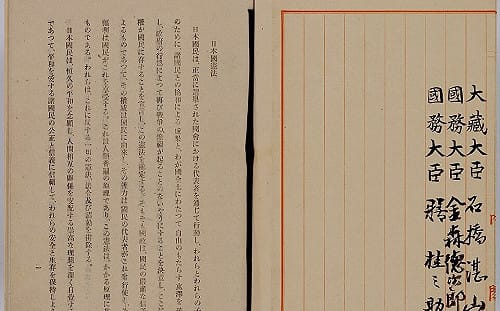 大藏大臣 石橋湛山
國務大臣 金森德次郎
國務大臣 膳桂之助
日本國憲法
日本國民は、正當に選擧された國會における代表者を通じて行動し、われらとわれらの子
のために、諸國民との協和による成果と、わが國全土にわたつて自由のもたらす惠澤を
し、政府の行爲によつて再び戰爭の慘禍が起ることのないやうにすることを決意し、ここ
權が國民に存することを宣言し、この憲法を確定する。そもそも國政は、國民の嚴肅な信
よるものであつて、その權威は國民に由來し、その權力は國民の代表者がこれを行使し、
福利は國民がこれを享受する。これは人類普遍の原理であり、この憲法は、かかる原理
ものである。われらは、これに反する一切の憲法、法令及び詔敕を排除する。
日本國民は、恒久の平和を念願し、人間相互の關係を支配する崇高な理想を深く自覺す
であつて、平和を愛する諸國民の公正と信義に信賴して、われらの安全と生存を保持しよ
一